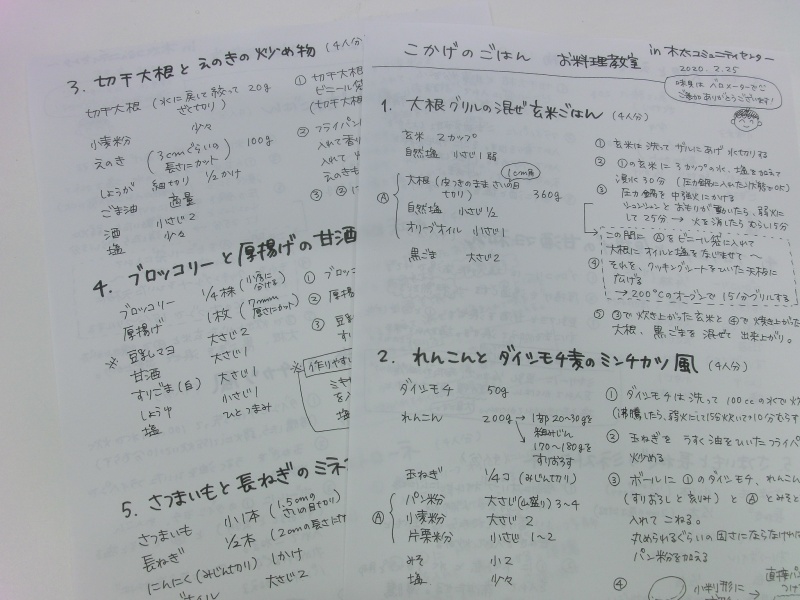 3. 切干大根と えのきの 炒め物 (4人分)
切干大根 (水に戻して絞って ざく切り) 20g
小麦粉 少々
えのき (3cmぐらいの 長さにカット) 100g
しょうが 細切り 1/2かけ
ごま油 適量
酒 小さじ2
塩 少々
① 切干大根
ビニール袋
(切干大根
② フライパン
入れて香り
入れて
えのきも
③ ②に
4. ブロッコリーと厚揚げの甘酒
ブロッコリー 1/4株 (小房に 分ける)
厚揚げ 1枚 (7mm 厚さにカット)
※ 豆乳マヨ 大さじ2
甘酒 大さじ1
すりごま(白) 大さじ1
しょうゆ 小さじ1
塩 ひとつまみ
① ブロッコ
② 厚揚げ
③ 豆乳
※ 作りやすい
ミキサ
を入
塩
5. さつまいもと長ねぎのミネ
さつまいも 小1本 (1.5cmの さいの目切り)
長ねぎ 1/2本 (2cmの長さに
にんにく (みじん切り) 1かけ
オイル 大さじ2
こかげのごはん お料理教室 in 木太コミュニティセンター
2020. 2.25
味見は バロメーターで
ご参加ありがとうございます!
1. 大根グリルの混ぜ玄米ごはん (4人分)
玄米 2カップ
自然塩 小さじ1弱
Ⓐ 大根 (皮つきのまま さいの目 切り) 1cm角 360g
自然塩 小さじ1/2
オリーブオイル 小さじ1
黒ごま 大さじ2
① 玄米は洗って ザルにあげ 水切りする
② ①の玄米に 3カップの水、塩を加えて
浸水30分 (圧力鍋に入れた状態でOK)
③ 圧力鍋を 中強火にかける
シュンシュンと おもりが動いたら、弱火に
して 25分 → 火を消したら むらし15分
この間に Ⓐをビニール袋に入れて
大根に オイルと塩を なじませて〜
④ それを、クッキングシートをひいた天板に
広げる
→200℃のオーブンで 15分グリルする
⑤ ③で炊き上がった玄米と ④で焼き上がった
大根、黒ごまを 混ぜて 出来上がり。
2. れんこんと ダイシモチ麦のミンチカツ風 (4人分)
ダイシモチ 50g
れんこん 200g → 1部 20~30gを
粗みじん
170~180gを
すりおろす
玉ねぎ 1/4コ (みじん切り)
Ⓐ パン粉 大さじ(山盛り) 3~4
小麦粉 大さじ 2
片栗粉 小さじ 1~2
みそ 小2
塩 少々
① ダイシモチは洗って 100ccの水で炊
(沸騰したら、弱火にして15分炊いて→10分むらす
② 玉ねぎを うすく油をひいたフライパ
炒める
③ ボールに ①のダイシモチ、れんこん
(すりおろしと 粗みじん) と Ⓐとみそと
入れて こねる。
丸められるぐらいの固さにならなければ
パン粉を加える
④ 小判形に
直接パン